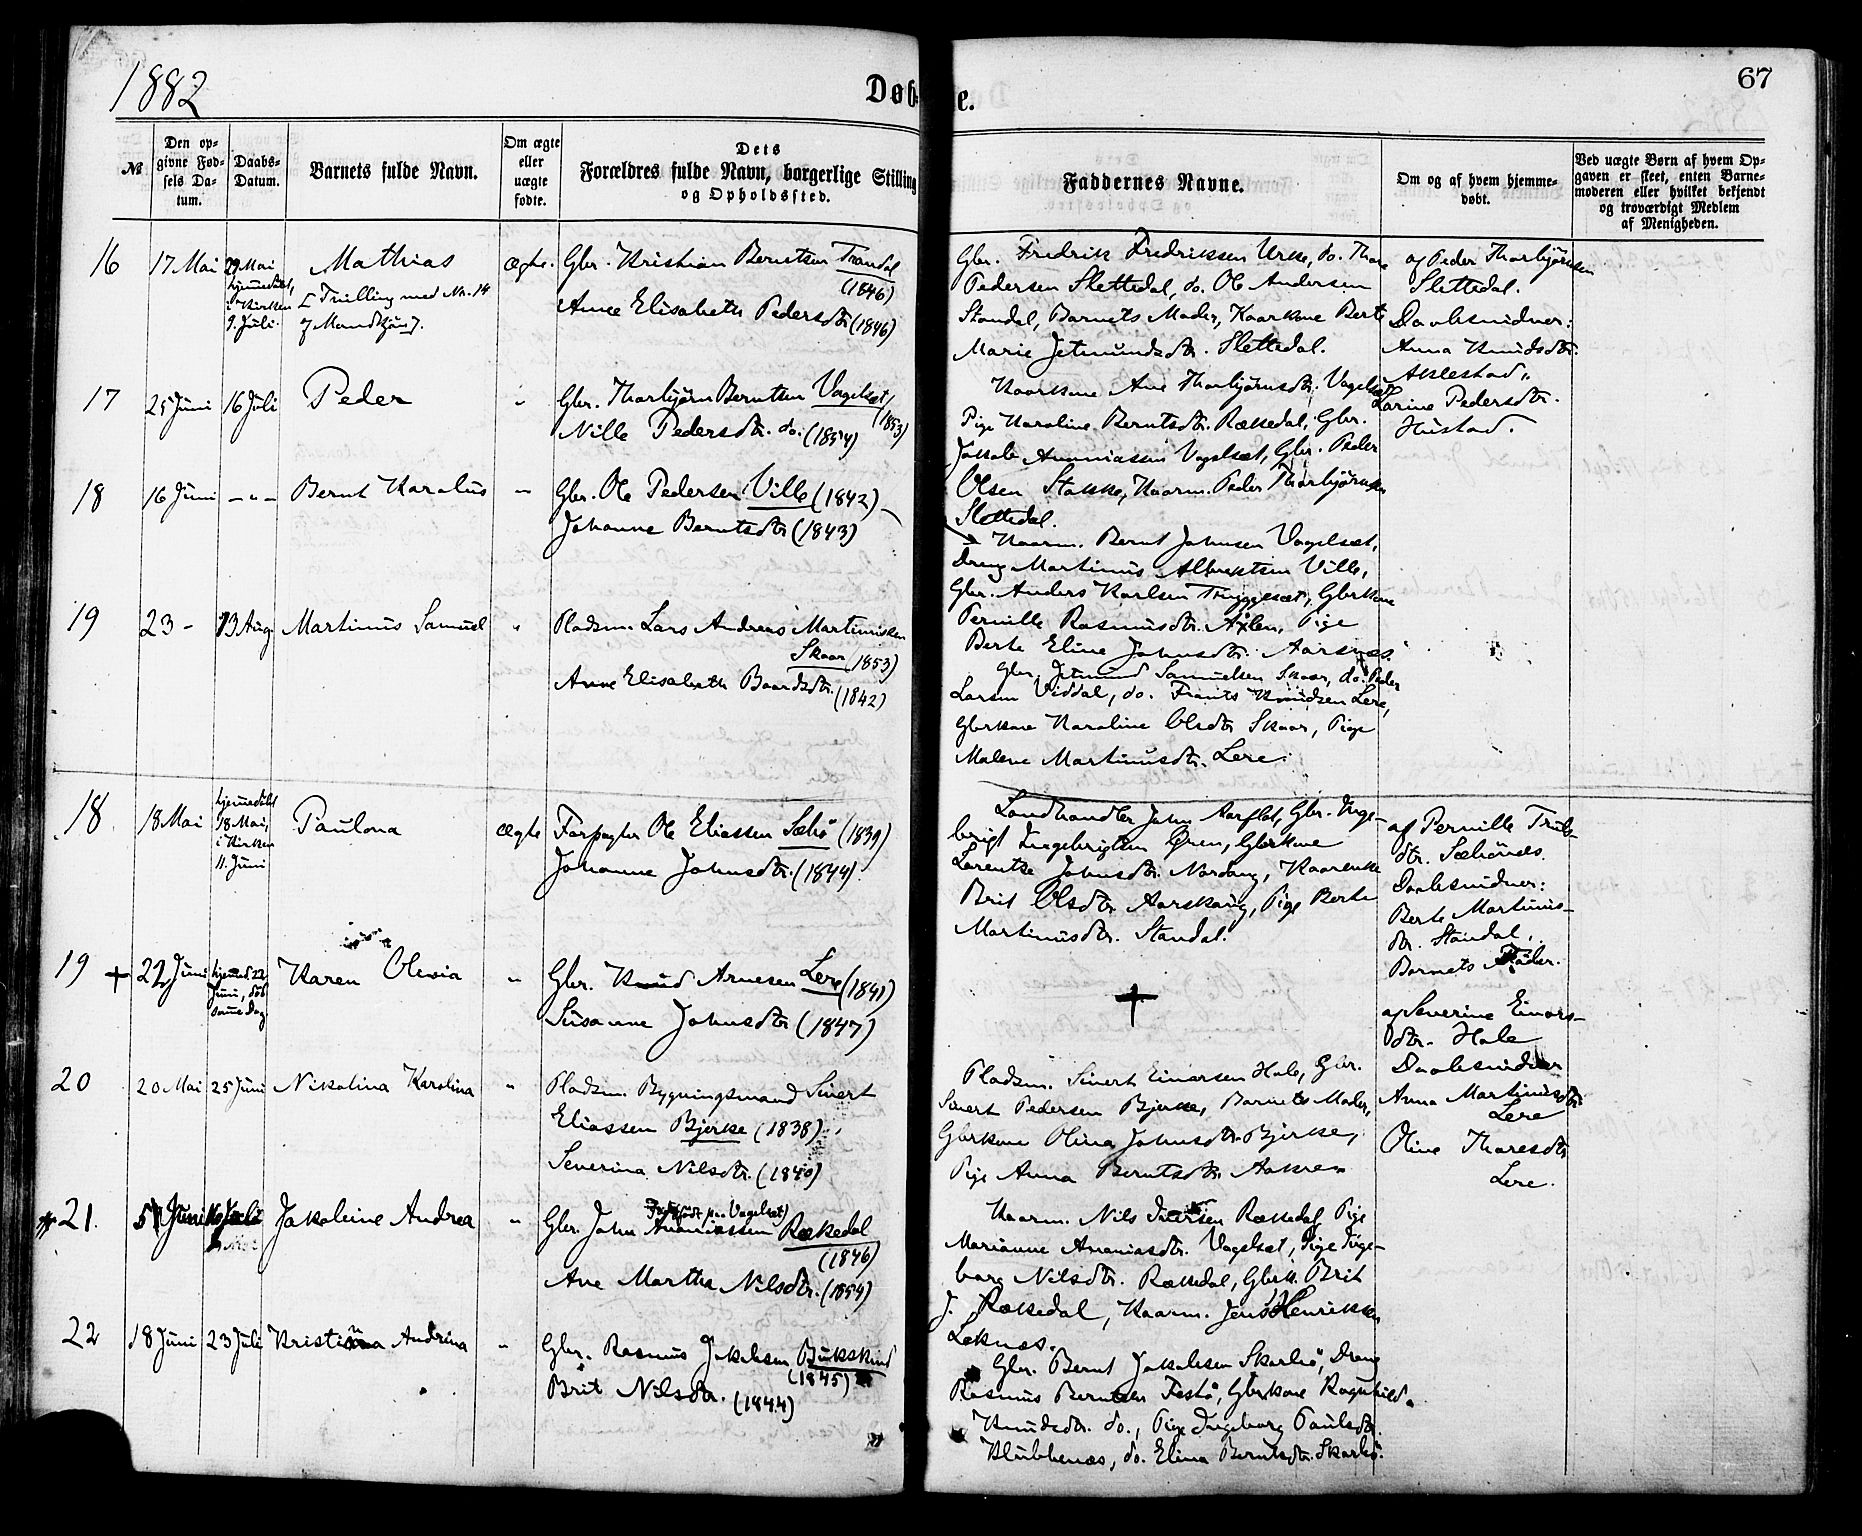 1882
Døb
e.
67
№
Den op-
givne Fød-
sels Da-
tum.
Daabs-
Datum.
Barnets fulde Navn.
Om ægte
eller
uægte
fødte.
Dets
Forældres fulde Navn, borgerlige Stilling
og Opholdssted.
Faddernes Navne.
Om og af hvem hjemme-
døbt.
Ved uægte Børn af hvem Op-
gaven er skeet, enten Barne-
moderen eller hvilket bekjendt
og troværdigt Medlem
af Menigheden.
16
17 Mai
29 Mai
hjemmedøbt,
i Kirken
9. Juli.
Mathias
[Tvilling med No. 14
af Mandkjøn].
ægte.
Gbr. Kristian Berntsen Trandal
(1846)
Anne Elisabeth Pedersdtr. (1846)
Gbr. Fredrik Fredriksen Urke, do. Thore
Pedersen Slettedal, do. Ole Andersen
Standal, Barnets Moder, Kaarkone Berte
Marie Jetmundsdtr. Slettedal.
af Peder Thorbjørnsen
Slettedal.
Daabsvidner:
Anna Knudsdtr.
Aklestad,
Karine Pedersdtr.
Hustad.
17
25 Juni
16 Juli
Peder
"
Gbr. Thorbjørn Berntsen Vagelsæt
(1853)
Nille Pedersdtr. do. (1854)
Kaarkone Ane Thorbjørnsdtr. Vagelsæt
Pige Karoline Berntsdtr. Rækkedal, Gbr.
Jakob Ananiassen Vagelsæt, Gbr. Peder
Olsen Stokke, Kaarm. Peder Thorbjørnsen
Slettedal.
18
16 Juni
— " —
Bernt Karolus
"
Gbr. Ole Pedersen Ville (1842)
Johanne Berntsdtr. (1843)
Kaarm. Bernt Johnsen Vagelsæt,
Dreng Martinus Albrektsen Ville,
Gbr. Anders Karlsen Tryggesæt, Gbrkone
Pernille Rasmusdtr. Aklen, Pige
Berte Eline Johnsdtr. Aarsnæs.
19
23 -
13 Aug
Martinus Samuel
"
Pladsm. Lars Andreas Martinussen
Skaar (1853)
Anne Elisabeth Baardsdtr.
(1842)
Gbr. Jetmund Samuelsen Skaar, do. Peder
Larsen Viddal, do. Frants Knudsen Lere,
Gbrkone Karoline Olsdtr. Skaar, Pige
Malene Martinusdtr. Lere.
18.
18 Mai
hjemmedøbt
18 Mai,
i Kirken
11. Juni
Paulona
ægte
Forpagter Ole Eliassen Sæbø (1839)
Johanne Johnsdtr. (1844)
Landhandler John Aarflot, Gbr. Inge-
brigt Ingebrigtsen Øren, Gbrkone
Lorentse Johnsdtr. Nordang, Kaarenke
Brit Olsdtr. Aarskoug, Pige Berte
Martinusdtr. Standal.
af Pernille Truls-
dtr. Sæbønes.
Daabsvidner:
Berte Martinus-
dtr. Standal,
Barnets Fader.
19
+
22 Juni
hjemmed. 22
Juni, død
samme Dag.
Karen Olevia
"
Gbr. Knud Arnesen Lere (1841)
Susanne Johnsdtr (1847)
+
af Severine Einars-
dtr. Hole
Daabsvidner
Anna Martinusdtr.
Lere
Oline Thoresdtr
Lere.
20
20 Mai
25 Juni
Nikolina Karolina
"
Pladsm. Bygningsmand Sivert
Eliassen Bjerke (1838)
Severina Nilsdtr. (1840)
Pladsm. Sivert Einarsen Hole, Gbr.
Sivert Pedersen Bjerke, Barnets Moder,
Gbrkone Olina Johnsdtr. Bjerke,
Pige Anna Berntsdtr. Aakre
21.
Juni
Juli
Jakobine Andrea
"
Vagelsæt)
Gbr. John Ananiassen Rækkedal
(1846)
Ane Martha Nilsdtr. (1854)
Kaarm. Nils Iversen Rækkedal, Pige
Marianne Ananiasdtr. Vagelsæt, Pige Inge-
borg Nilsdtr. Rækkedal, Gbrk. Brit
J. Rækkedal, Kaarm. Jens Henriksen
Leknæs.
22
18 Juni
23 Juli
Kristina Andrina
"
Gbr. Rasmus Jakobsen Bukskind
(1845)
Brit Nilsdtr. (1844)
Gbr. Bernt Jakobsen Skarbø, Dreng
Rasmus Berntsen Festø, Gbrkone Ragnhild
Knudsdtr. do., Pige Ingeborg Paulsdtr.
Klubbenæs, do. Elina Berntsdtr. Skarbø.